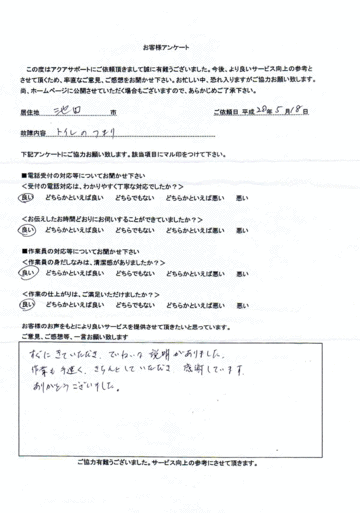 お客様アンケート
この度はアクアサポートにご依頼頂きまして誠に有難うございました。今後、より良いサービス向上の参考と
させて頂くため、率直なご意見、ご感想をお聞かせ下さい。お忙しい中、恐れ入りますがご協力お願い致します。
尚、ホームページに公開させていただく場合もございますので、あらかじめご了承下さい。
居住地 池田 市 ご依頼日 平成 28年 5月 18日
故障内容 トイレのつまり
下記アンケートにご協力お願い致します。該当項目にマル印をつけて下さい。
■電話受付の対応等についてお聞かせ下さい
<受付の電話対応は、わかりやすく丁寧な対応でしたか?>
良い どちらかといえば良い どちらでもない どちらかといえば悪い 悪い
<お伝えしたお時間どおりにお伺いすることができていましたか?>
良い どちらかといえば良い どちらでもない どちらかといえば悪い 悪い
■作業員の対応等についてお聞かせ下さい
<作業員の身だしなみは、清潔感がありましたか?>
良い どちらかといえば良い どちらでもない どちらかといえば悪い 悪い
<作業の仕上がりは、ご満足いただけましたか?>
良い どちらかといえば良い どちらでもない どちらかといえば悪い 悪い
お客様のお声をもとにより良いサービスを提供させて頂きたいと思っています。
ご意見、ご感想等、一言お願い致します
すぐにきていただき、ていねいな説明がありました。
作業も手速く、きちんとしていただき 感謝しています。
ありがとうございました。
ご協力有難うございました。サービス向上の参考にさせて頂きます。